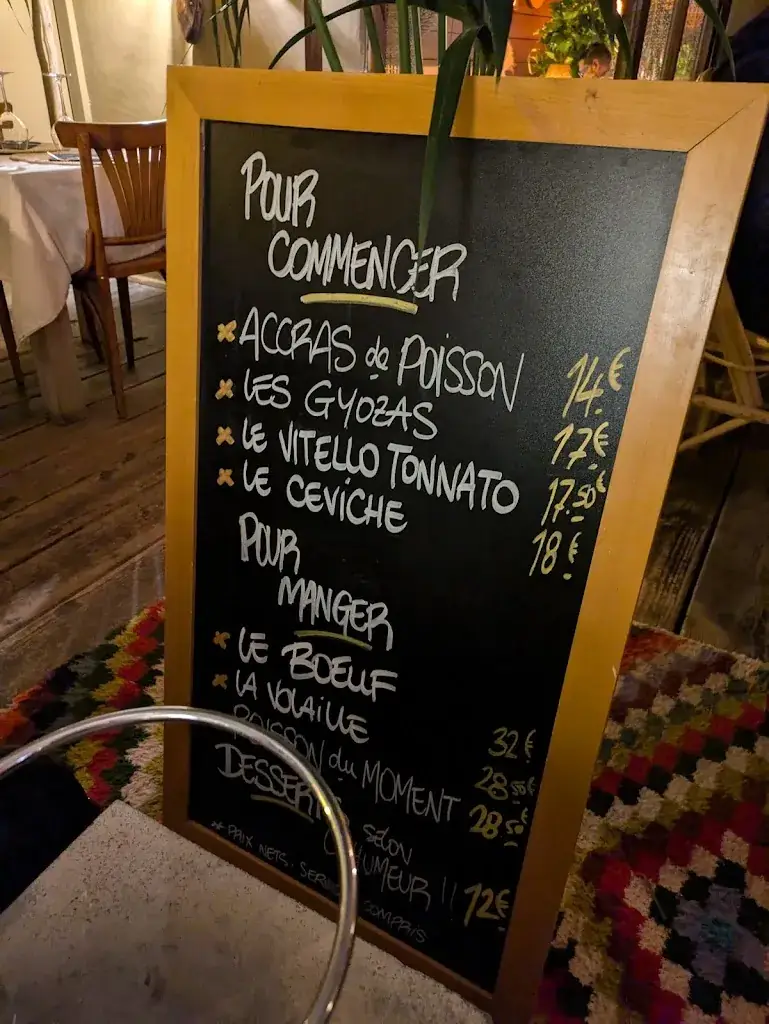 POUR
COMMENCER
× ACCRAS de POISSON 14.€
× LES GYOZAS 17€
× LE VITELLO TONNATO 17.50€
× LE CEVICHE 18€
POUR
MANGER
× LE BOEUF 32€
× LA VOLAILLE 28.50€
POISSON du MOMENT 28.50€
DESSERTS SELON
L'HUMEUR !! 12€
* PRIX NETS. SERVICE COMPRIS